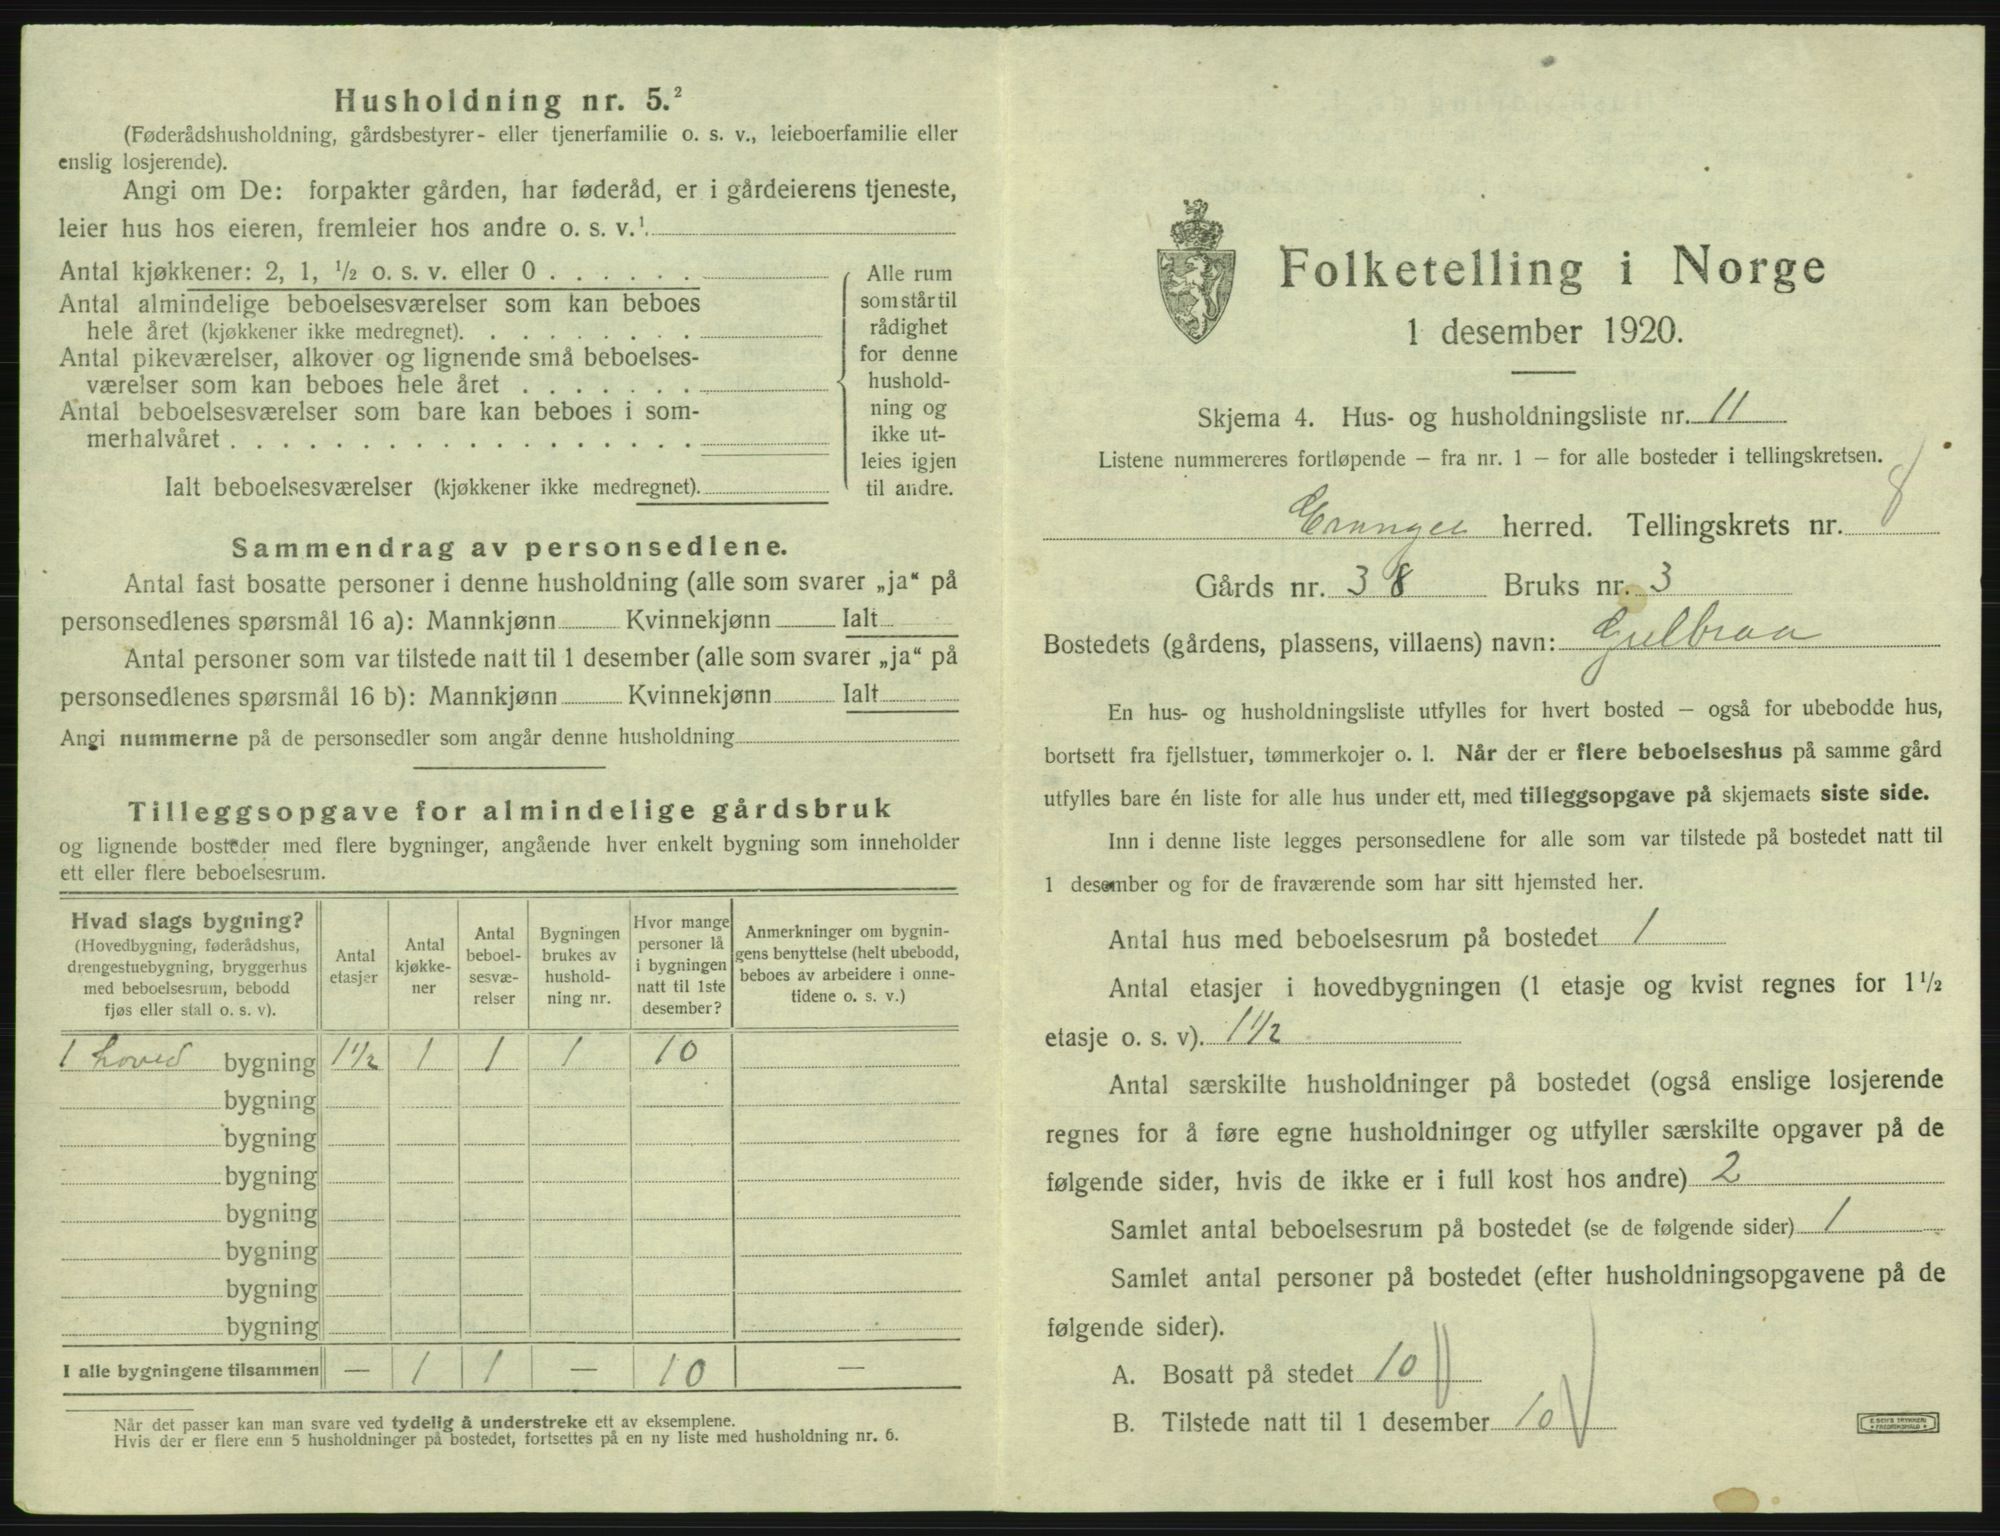 Husholdning nr. 5.²
(Føderådshusholdning, gårdsbestyrer- eller tjenerfamilie o. s. v., leieboerfamilie eller
enslig losjerende).
Angi om De: forpakter gården, har føderåd, er i gårdeierens tjeneste,
leier hus hos eieren, fremleier hos andre o. s. v.¹
Antal kjøkkener: 2, 1, ½ o. s. v. eller 0 . . . . . .
Antal almindelige beboelsesværelser som kan beboes
hele året (kjøkkener ikke medregnet). . . . . . . . .
Antal pikeværelser, alkover og lignende små beboelses-
værelser som kan beboes hele året . . . . . . .
Antal beboelsesværelser som bare kan beboes i som-
merhalvåret . . . . . . . . . . . . . . . . . .
Ialt beboelsesværelser (kjøkkener ikke medregnet).
Alle rum
som står til
rådighet
for denne
hushold-
ning og
ikke ut-
leies igjen
til andre.
Sammendrag av personsedlene.
Antal fast bosatte personer i denne husholdning (alle som svarer „ja“ på
personsedlenes spørsmål 16 a): Mannkjønn Kvinnekjønn Ialt
Antal personer som var tilstede natt til 1 desember (alle som svarer „ja“ på
personsedlenes spørsmål 16 b): Mannkjønn Kvinnekjønn Ialt
Angi nummerne på de personsedler som angår denne husholdning
Tilleggsopgave for almindelige gårdsbruk
og lignende bosteder med flere bygninger, angående hver enkelt bygning som inneholder
ett eller flere beboelsesrum.
Hvad slags bygning?
(Hovedbygning, føderådshus,
drengestuebygning, bryggerhus
med beboelsesrum, bebodd
fjøs eller stall o. s. v).
Antal
etasjer
Antal
kjøkke-
ner
Antal
beboel-
sesvæ-
relser
Bygningen
brukes av
hushold-
ning nr.
Hvor mange
personer lå
i bygningen
natt til 1ste
desember?
Anmerkninger om bygnin-
gens benyttelse (helt ubebodd,
beboes av arbeidere i onne-
tidene o. s. v.)
1 hoved bygning 1½ 1 1 1 10
bygning
bygning
bygning
bygning
bygning
bygning
bygning
I alle bygningene tilsammen — 1 1 — 10 —
Når det passer kan man svare ved tydelig å understreke ett av eksemplene.
Hvis der er flere enn 5 husholdninger på bostedet, fortsettes på en ny liste med husholdning nr. 6.
Folketelling i Norge
1 desember 1920.
Skjema 4. Hus- og husholdningsliste nr. 11
Listene nummereres fortløpende — fra nr. 1 — for alle bosteder i tellingskretsen.
herred. Tellingskrets nr. 8
Gårds nr. 38 Bruks nr. 3
Bostedets (gårdens, plassens, villaens) navn: Gulbraa
En hus- og husholdningsliste utfylles for hvert bosted — også for ubebodde hus,
bortsett fra fjellstuer, tømmerkojer o. l. Når der er flere beboelseshus på samme gård
utfylles bare én liste for alle hus under ett, med tilleggsopgave på skjemaets siste side.
Inn i denne liste legges personsedlene for alle som var tilstede på bostedet natt til
1 desember og for de fraværende som har sitt hjemsted her.
Antal hus med beboelsesrum på bostedet 1
Antal etasjer i hovedbygningen (1 etasje og kvist regnes for 1½
etasje o. s. v). 1½
Antal særskilte husholdninger på bostedet (også enslige losjerende
regnes for å føre egne husholdninger og utfyller særskilte opgaver på de
følgende sider, hvis de ikke er i full kost hos andre) 2
Samlet antal beboelsesrum på bostedet (se de følgende sider) 1
Samlet antal personer på bostedet (efter husholdningsopgavene på de
følgende sider).
A. Bosatt på stedet 10
B. Tilstede natt til 1 desember 10